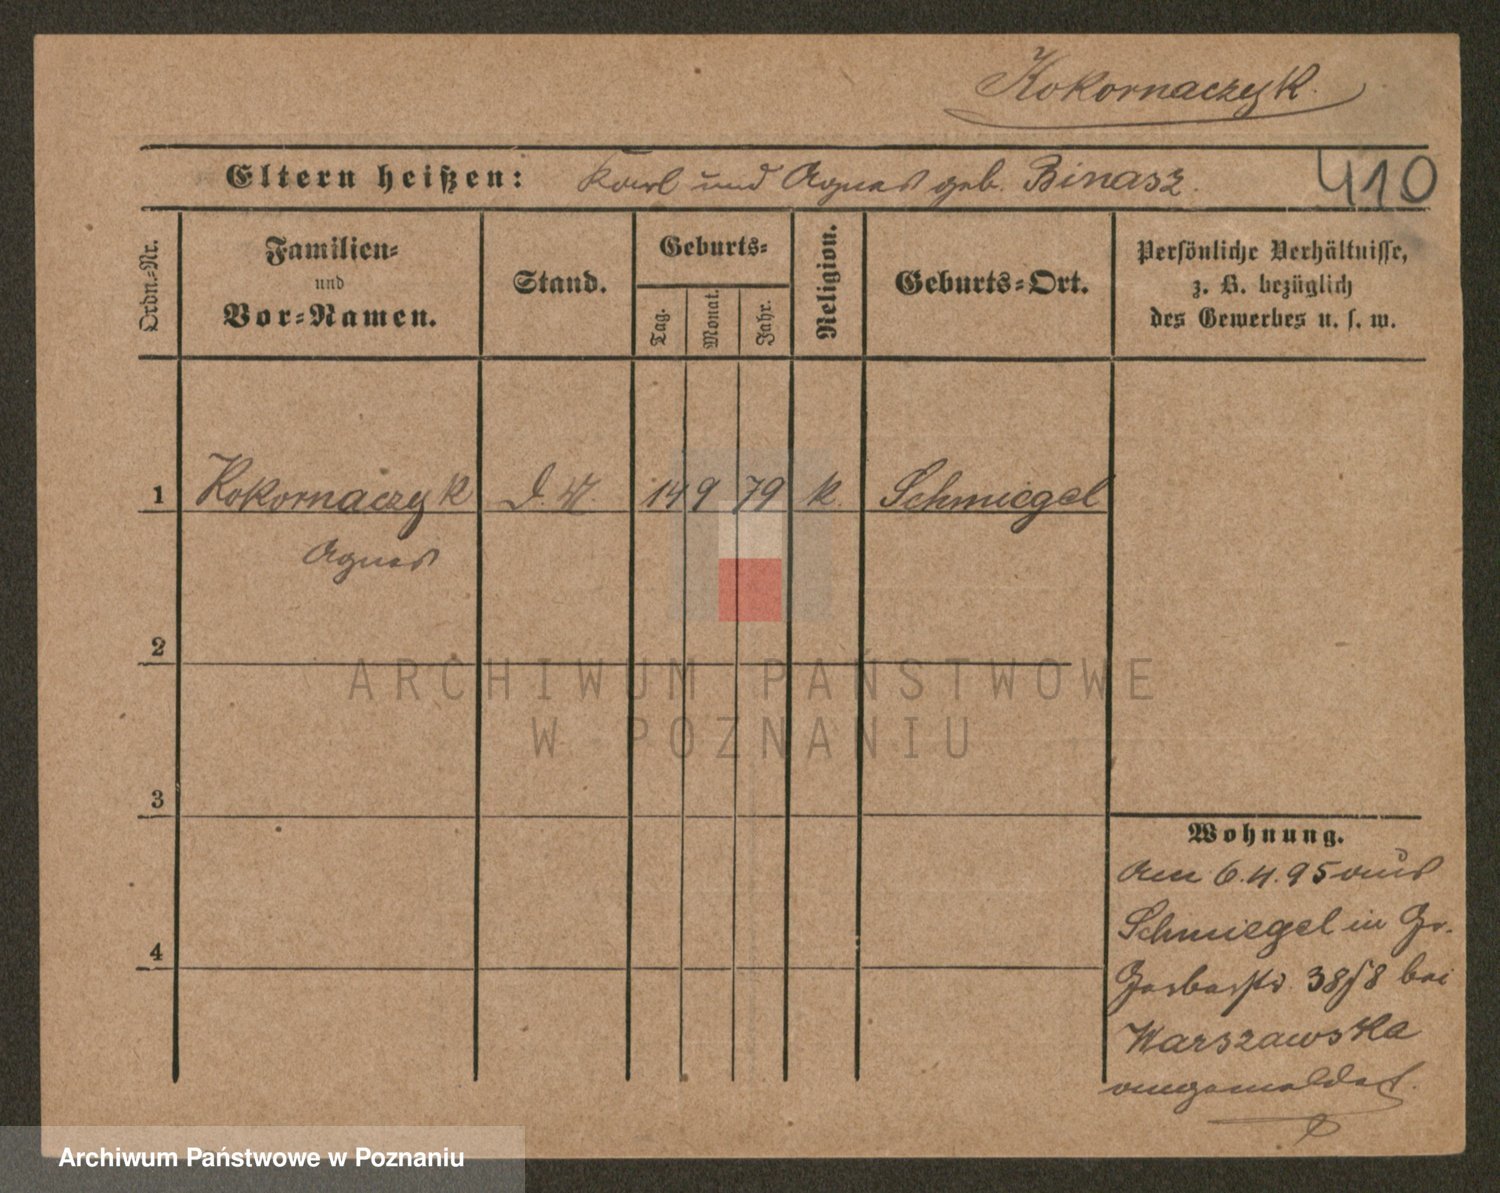 Kokornaczyk
Eltern heißen: Karl und Agnes geb. Binasz.
410
Ordn.-Nr.
Familien-
und
Vor-Namen.
Stand.
Geburts-
Tag.
Monat.
Jahr.
Religion.
Geburts-Ort.
Persönliche Verhältnisse,
z. B. bezüglich
des Gewerbes u. s. w.
1 Kokornaczyk 14 9 79 k. Schmiegel
Agnes
2
3
4
Wohnung.
Am 6.4.95 aus
Schmiegel in Gr.
Gerberstr. 38/8 bei
Warszawska
angemeldet.
ARCHIWUM PAŃSTWOWE
W POZNANIU
Archiwum Państwowe w Poznaniu